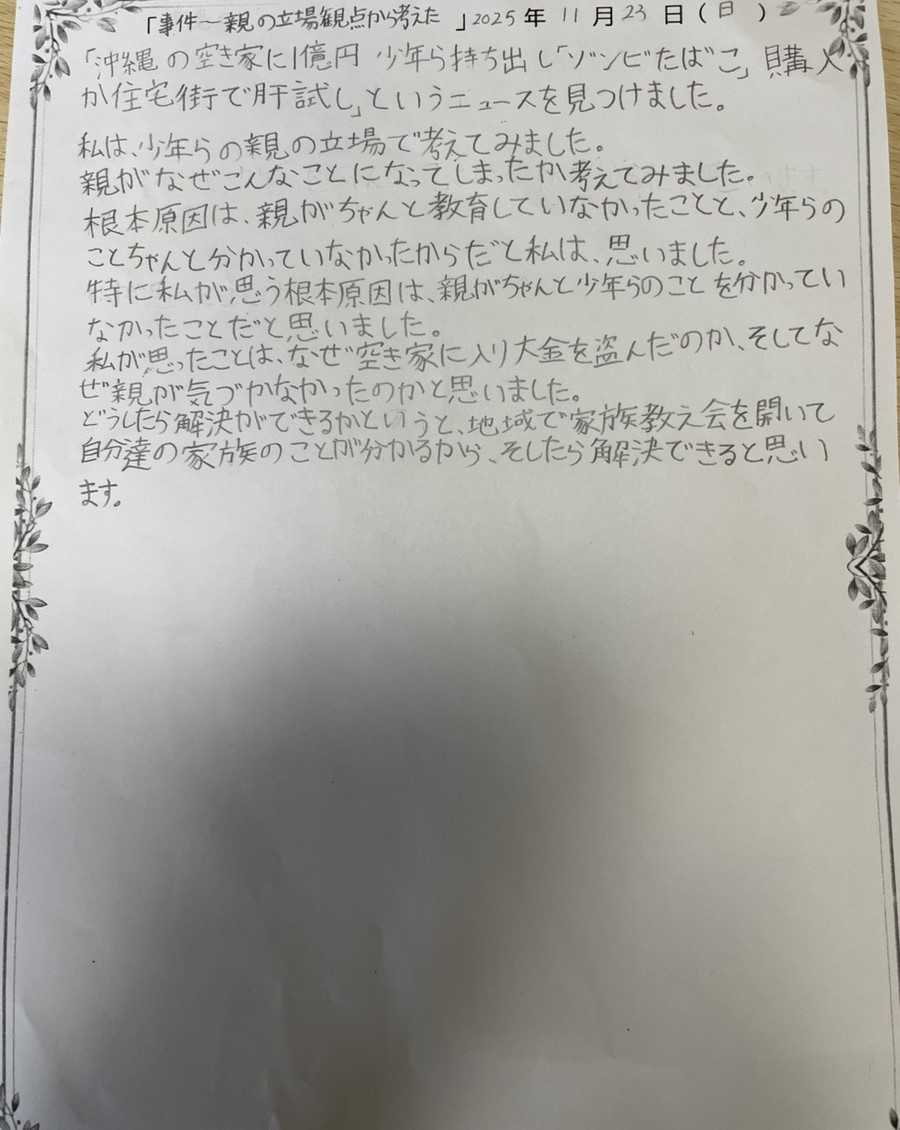 「事件～親の立場観点から考えた 」2025年 11月23日(日)
「沖縄の空き家に1億円 少年ら持ち出し「ゾンビたばこ」購入
か住宅街で肝試し」というニュースを見つけました。
私は、少年らの親の立場で考えてみました。
親がなぜこんなことになってしまったか考えてみました。
根本原因は、親がちゃんと教育していなかったことと、少年らの
ことちゃんと分かっていなかったからだと私は、思いました。
特に私が思う根本原因は、親がちゃんと少年らのことを分かってい
なかったことだと思いました。
私が思ったことは、なぜ空き家に入り大金を盗んだのか、そしてな
ぜ親が気づかなかったのかと思いました。
どうしたら解決ができるかというと、地域で家族教え会を開いて
自分達の家族のことが分かるから、そしたら解決できると思い
ます。